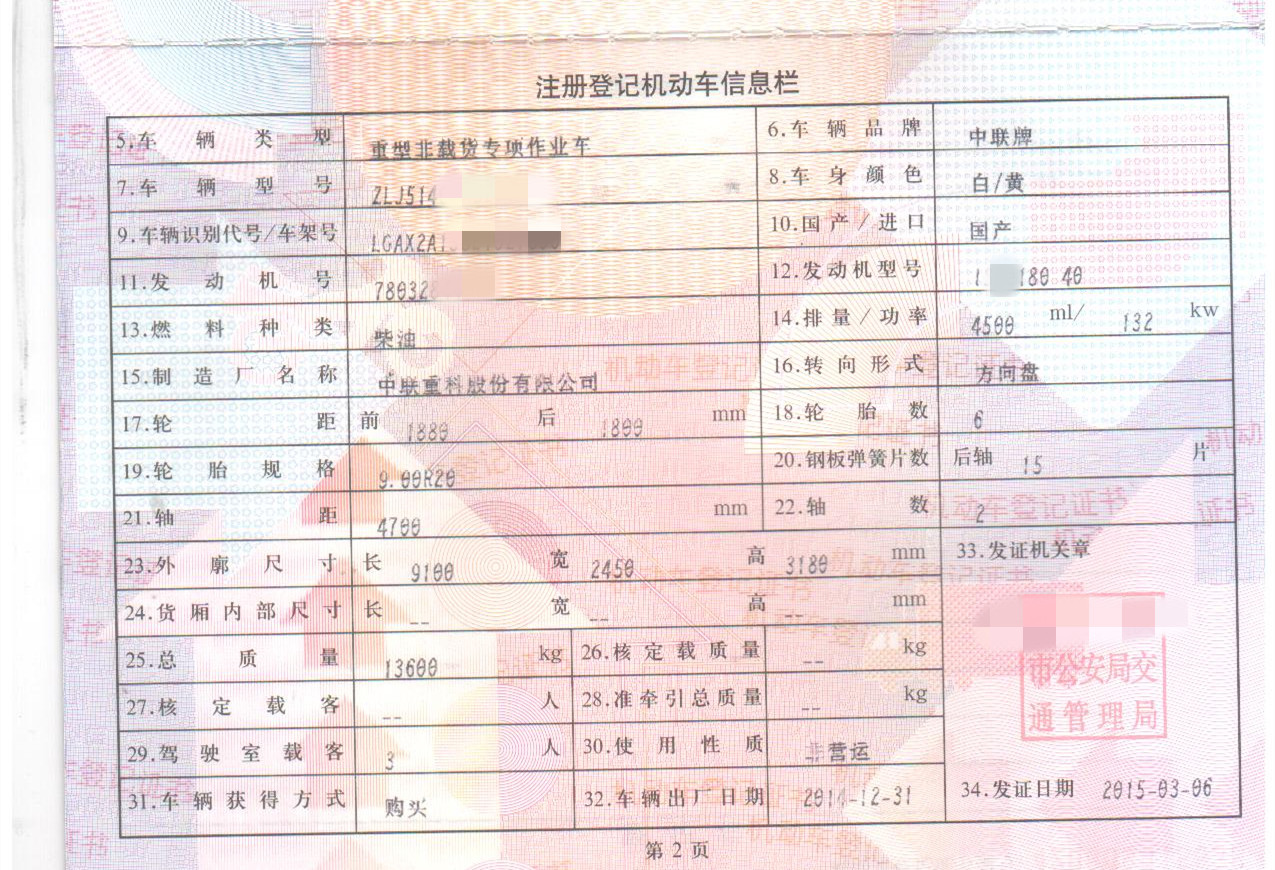 注册登记机动车信息栏
5.车辆类型 重型非载货专项作业车 6.车辆品牌 中联牌
7.车辆型号 ZLJ514 8.车身颜色 白/黄
9.车辆识别代号/车架号 LGAX2A1 10.国产/进口 国产
11.发动机号 78032 12.发动机型号 180 40
13.燃料种类 柴油 14.排量/功率 4500 ml/ 132 kw
15.制造厂名称 中联重科股份有限公司 16.转向形式 方向盘
17.轮距 前 1880 后 1800 mm 18.轮胎数 6
19.轮胎规格 9.00R20 20.钢板弹簧片数 后轴 15 片
21.轴距 4700 mm 22.轴数 2
23.外廓尺寸 长 9100 宽 2450 高 3180 mm 33.发证机关章
24.货厢内部尺寸 长 -- 宽 -- 高 -- mm
25.总质量 13600 kg 26.核定载质量 -- kg
市公安局交
27.核定载客 -- 人 28.准牵引总质量 -- kg
通管理局
29.驾驶室载客 3 人 30.使用性质 非营运
31.车辆获得方式 购买 32.车辆出厂日期 2014-12-31 34.发证日期 2015-03-06
第2页